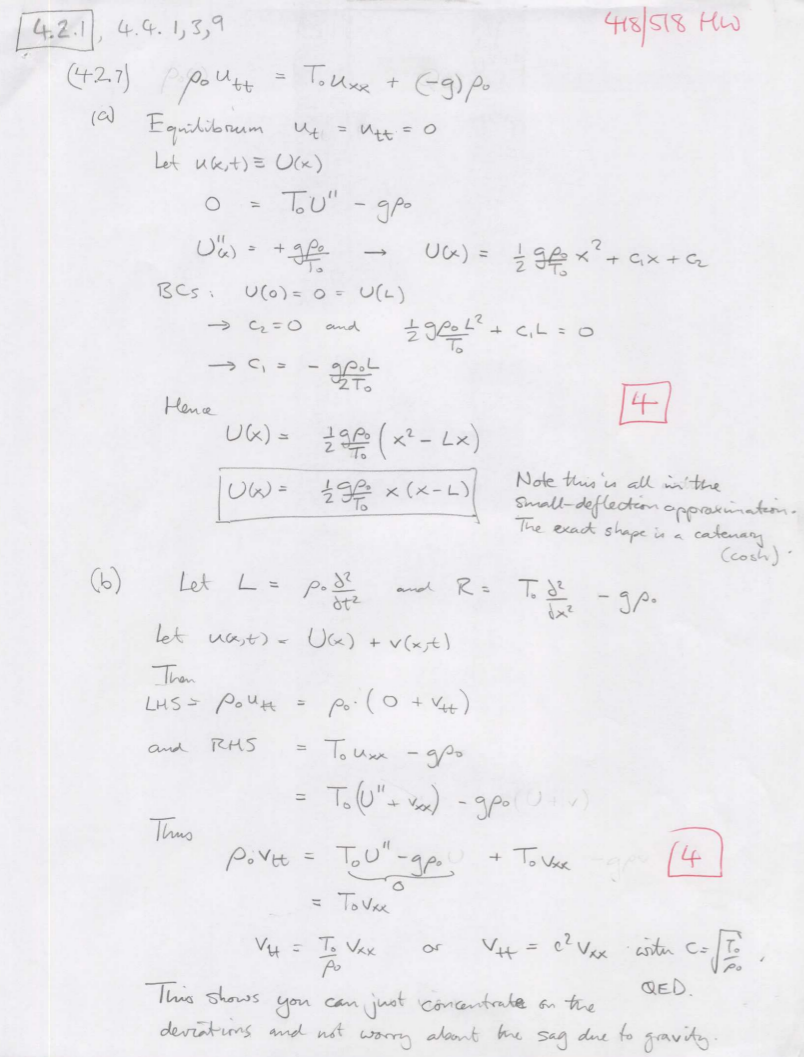 4.2.1, 4.4. 1,3,9
418/518 HW
(4.2.7) ρ₀ u_tt = T₀ u_xx + (-g) ρ₀
(a) Equilibrium u_t = u_tt = 0
Let u(x,t) ≡ U(x)
0 = T₀U'' - gρ₀
U''(x) = + gρ₀/T₀ → U(x) = 1/2 gρ₀/T₀ x² + c₁x + c₂
BCs: U(0) = 0 = U(L)
→ c₂ = 0 and 1/2 gρ₀L²/T₀ + c₁L = 0
→ c₁ = - gρ₀L/2T₀
4
Hence
U(x) = 1/2 gρ₀/T₀ (x² - Lx)
U(x) = 1/2 gρ₀/T₀ x(x-L)
Note this is all in the
small-deflection approximation.
The exact shape is a catenary
(cosh).
(b) Let L = ρ₀ ∂²/∂t² and R = T₀ ∂²/∂x² - gρ₀
Let u(x,t) = U(x) + v(x,t)
Then
LHS = ρ₀u_tt = ρ₀·(0 + v_tt)
and RHS = T₀u_xx - gρ₀
= T₀(U'' + v_xx) - gρ₀
Thus
ρ₀v_tt = T₀U'' - gρ₀ + T₀v_xx
0
4
= T₀v_xx
v_tt = T₀/ρ₀ v_xx or v_tt = c² v_xx with c = √(T₀/ρ₀).
QED.
This shows you can just concentrate on the
deviations and not worry about the sag due to gravity.